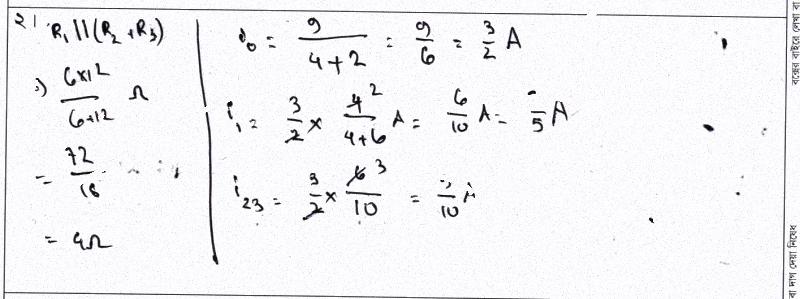 21. R₁ || (R₂ + R₃)
⇒ 6×12 / 6+12 Ω
= 72 / 18
= 4Ω
i₀ = 9 / 4+2 = 9/6 = 3/2 A
i₁ = 3/2 × 4 2 / 4+6 A = 6/10 A = /5 A
i₂₃ = 3/2 × 6 3 / 10 = /10 A
বক্সের বাইরে লেখা বা
বা দাগ দেয়া নিষেধ